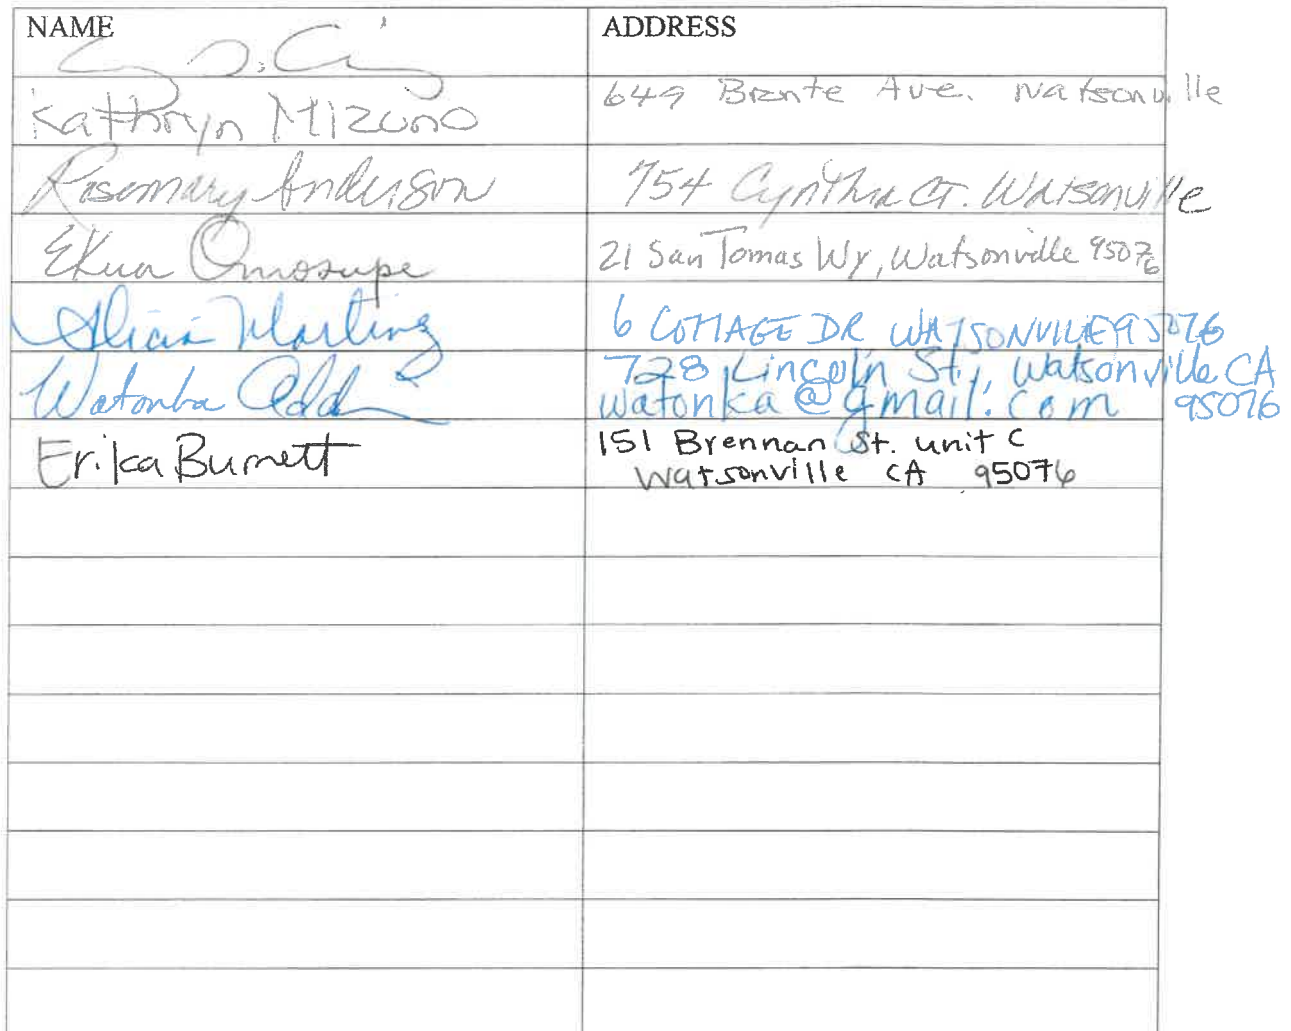 NAME ADDRESS
Kathryn Mizuno 649 Brente Ave. Watsonville
Rosemary Anderson 754 Cynthia CT. Watsonville
Ekua Omosupe 21 San Tomas Wy, Watsonville 95076
Alicia Martinez 6 COTTAGE DR WATSONVILLE 95076
728 Lincoln St., Watsonville CA
Watonka watonka@gmail.com 95076
Erika Burnett 151 Brennan St. unit C
Watsonville CA 95076